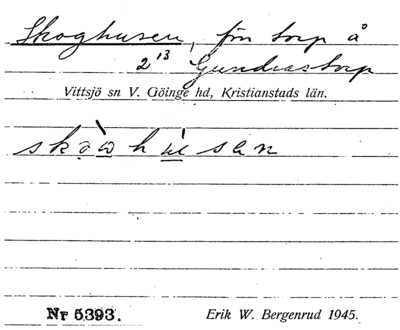 Skoghusen, fm torp å
2¹³ Gundrastorp
Vittsjö sn V. Göinge hd, Kristianstads län.
Nr 5393. Erik W. Bergenrud 1945.